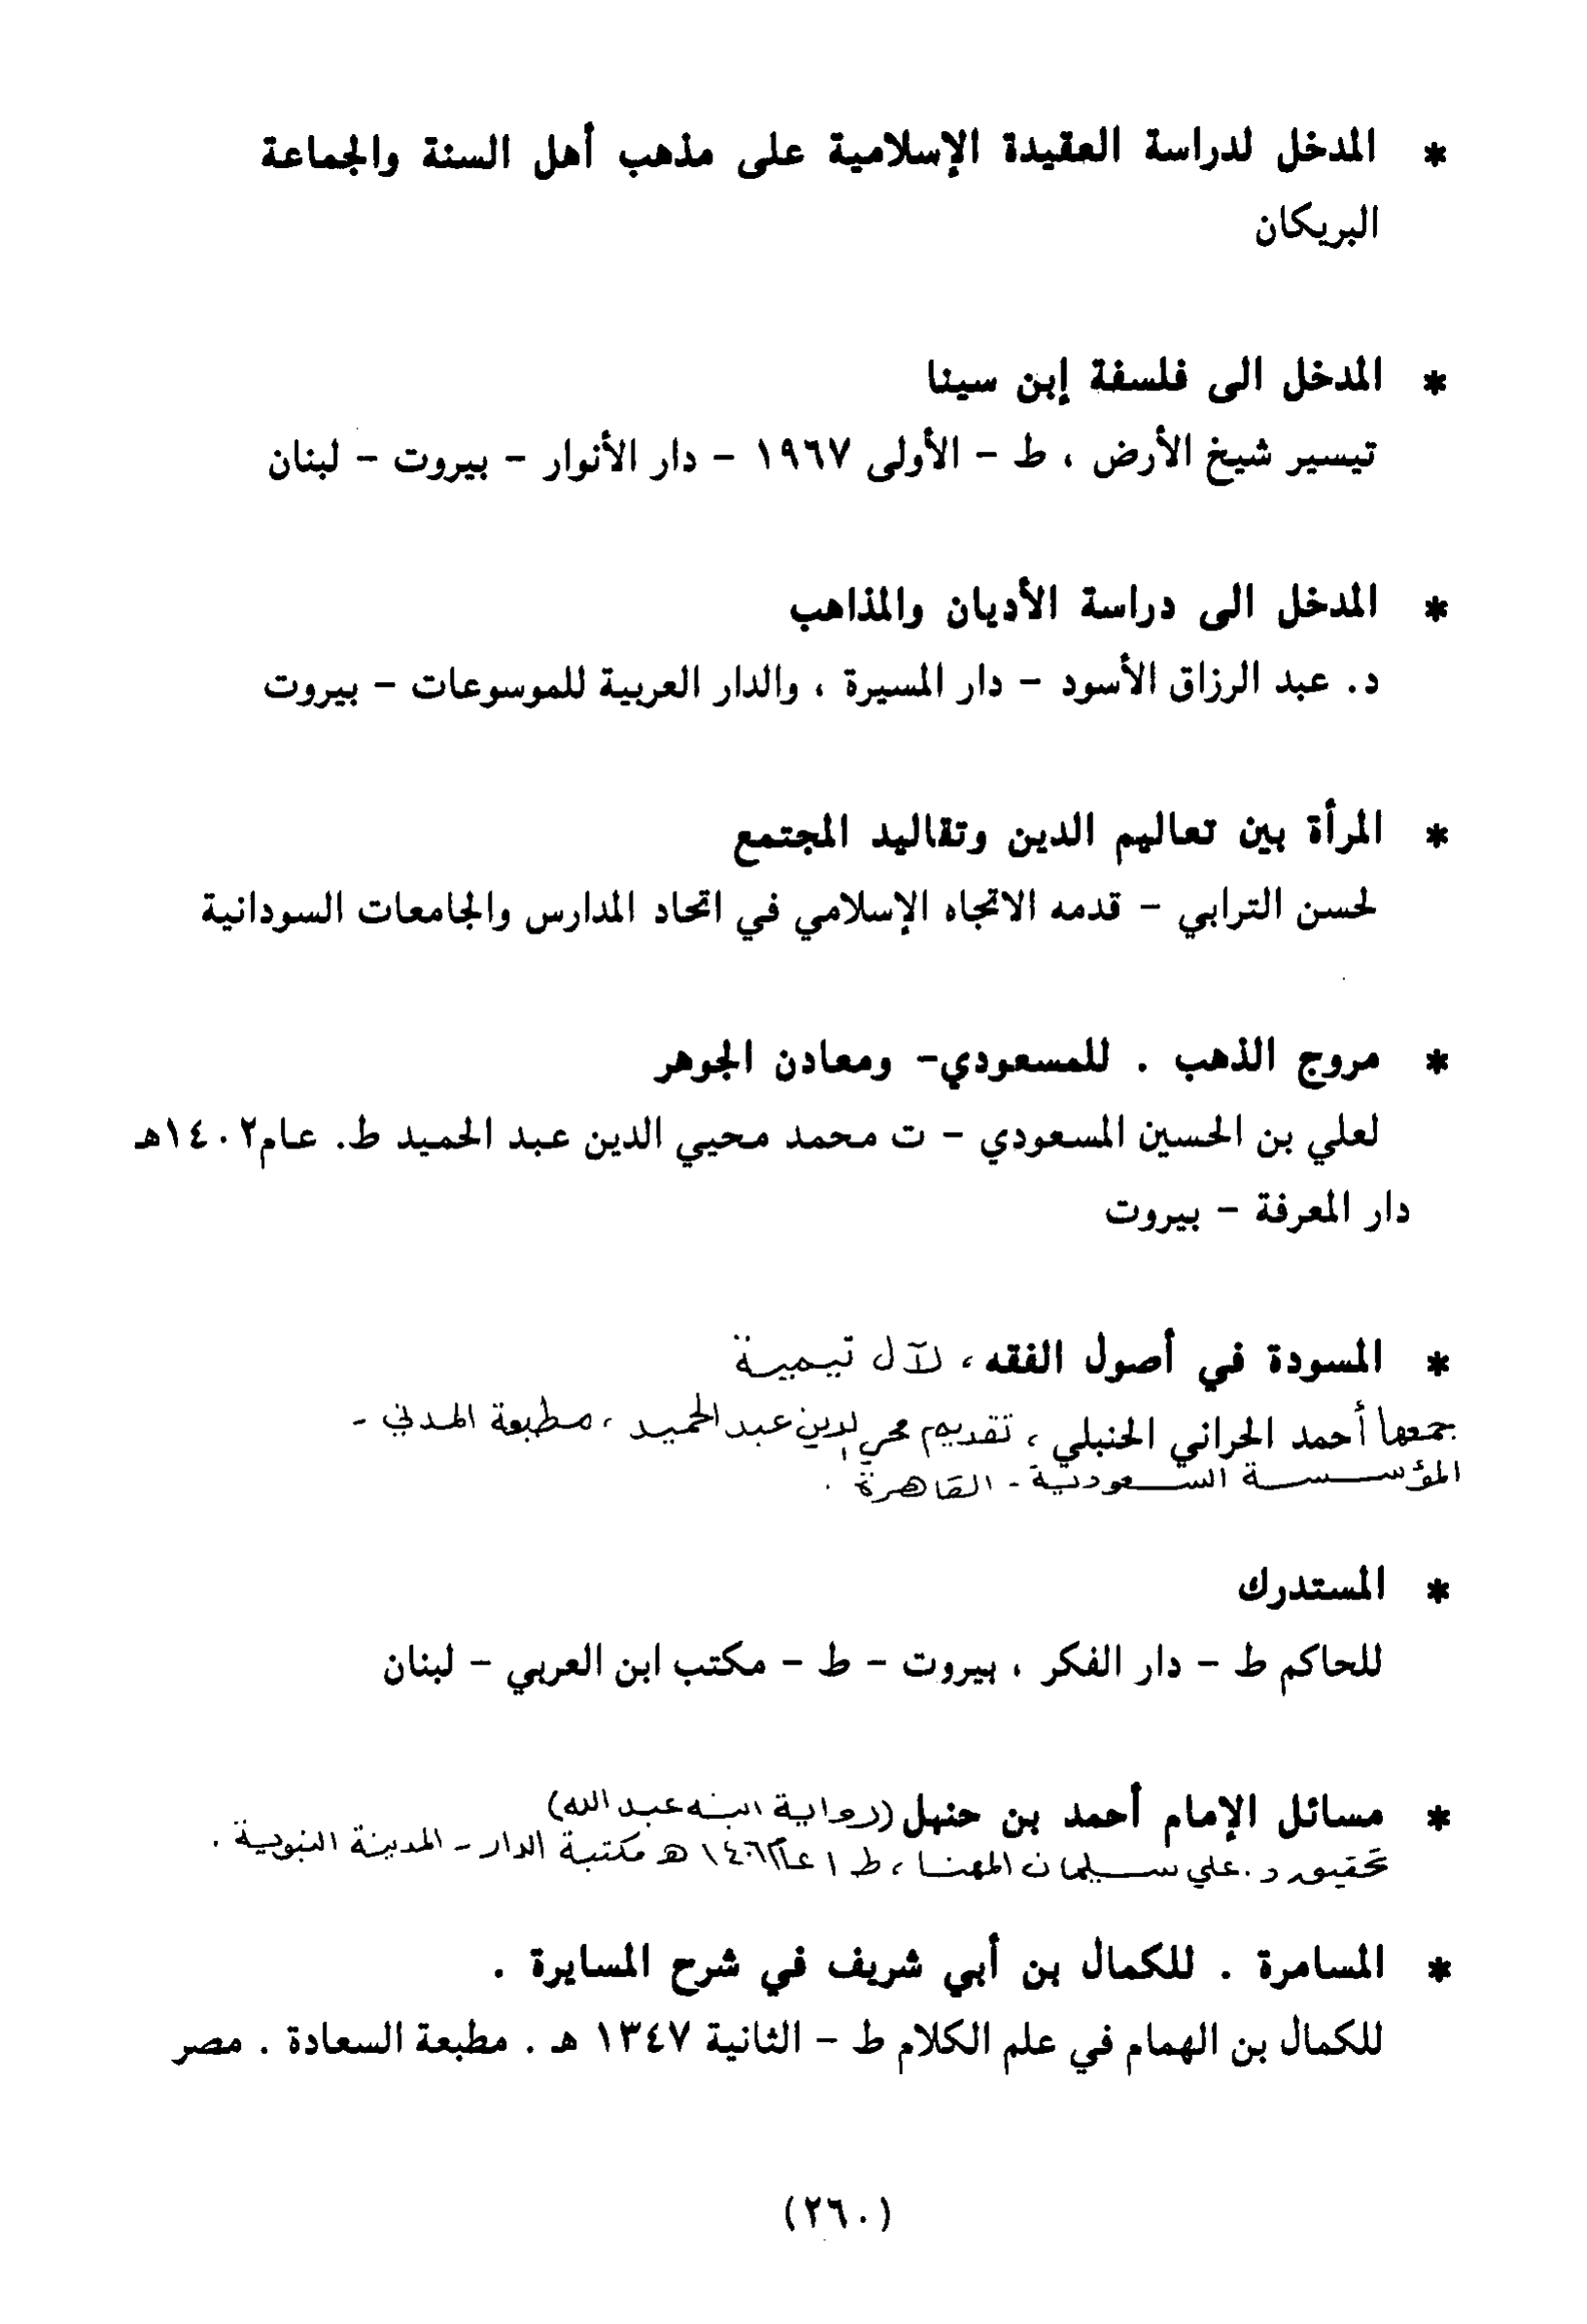 * المدخل لدراسة العقيدة الإسلامية على مذهب أهل السنة والجماعة
البريكان
* المدخل الى فلسفة إبن سينا
تيسير شيخ الأرض ، ط - الأولى ١٩٦٧ - دار الأنوار - بيروت - لبنان
* المدخل الى دراسة الأديان والمذاهب
د. عبد الرزاق الأسود - دار المسيرة ، والدار العربية للموسوعات - بيروت
* المرأة بين تعاليم الدين وتقاليد المجتمع
لحسن الترابي - قدمه الاتجاه الإسلامي في اتحاد المدارس والجامعات السودانية
* مروج الذهب . للمسعودي- ومعادن الجوهر
لعلي بن الحسين المسعودي - ت محمد محيي الدين عبد الحميد ط. عام١٤٠٢هـ
دار المعرفة - بيروت
* المسودة في أصول الفقه ، لآل تيمية
جمعها أحمد الحراني الحنبلي ، تقديم محي الدين عبد الحميد ، مطبعة المدني -
المؤسسة السعودية - القاهرة .
* المستدرك
للحاكم ط - دار الفكر ، بيروت - ط - مكتب ابن العربي - لبنان
* مسائل الإمام أحمد بن حنبل (رواية ابنه عبد الله)
تحقيق د. علي سليمان المهنا ، ط ١ عام ١٤٠٦ هـ مكتبة الدار - المدينة النبوية .
* المسامرة . للكمال بن أبي شريف في شرح المسايرة .
للكمال بن الهمام في علم الكلام ط - الثانية ١٣٤٧ هـ . مطبعة السعادة . مصر
(٢٦٠)